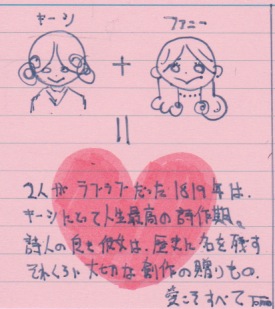 キーツ
ファニー
+
=
2人がラブラブだった1819年は、
キーツにとって人生最高の詩作期。
詩人の良き彼女は、歴史に名を残す
それくらい大切な創作の贈りもの。
愛こそすべて Tomo